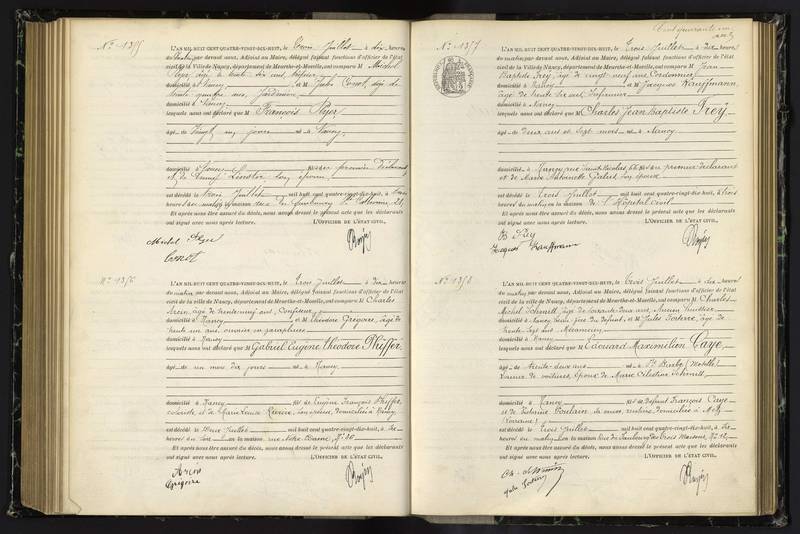 N° 1355
L'AN MIL HUIT CENT QUATRE-VINGT-DIX-HUIT, le Trois Juillet à dix heures
du matin par devant nous, Adjoint au Maire, délégué faisant fonctions d'officier de l'état
civil de la Ville de Nancy, département de Meurthe-et-Moselle, ont comparu M Michel
domicilié à Nancy et M Jules Cornet, âgé de
trente quatre ans,
domicilié à Nancy
lesquels nous ont déclaré que M François
âgé de jours né à Nancy
domicilié à Nancy fils du premier déclarant
son épouse
est décédé le Trois Juillet mil huit cent quatre-vingt-dix-huit, à
heures du matin en sa maison rue du faubourg Ste Catherine, 21
Et après nous être assuré du décès, nous avons dressé le présent acte que les déclarants
ont signé avec nous après lecture. L'OFFICIER DE L'ÉTAT CIVIL,
Michel
Cornet
N° 1356
L'AN MIL HUIT CENT QUATRE-VINGT-DIX-HUIT, le Trois Juillet à dix heures
du matin par devant nous, Adjoint au Maire, délégué faisant fonctions d'officier de l'état
civil de la ville de Nancy, département de Meurthe-et-Moselle, ont comparu M Charles
âgé de trente neuf ans,
domicilié à Nancy et M Théodore Grégoire, âgé de
trente un ans, ouvrier en parapluies
domicilié à Nancy
lesquels nous ont déclaré que M Gabriel Eugène Théodore Phiffer
âgé de un mois dix jours né à Nancy
domicilié à Nancy fils de Eugène François Phiffer,
son épouse, domiciliés à Nancy
est décédé le Deux Juillet mil huit cent quatre-vingt-dix-huit, à six
heures du soir en sa maison rue Notre Dame, N°
Et après nous être assuré du décès, nous avons dressé le présent acte que les déclarants
ont signé avec nous après lecture. L'OFFICIER DE L'ÉTAT CIVIL,
Grégoire
Cent quarante un
N° 1357
L'AN MIL HUIT CENT QUATRE-VINGT-DIX-HUIT, le Trois Juillet à dix heures
du matin par devant nous, Adjoint au Maire, délégué faisant fonctions d'officier de l'état
civil de la Ville de Nancy, département de Meurthe-et-Moselle, ont comparu M Jean
Baptiste Frey, âgé de vingt neuf ans, Cordonnier
domicilié à Nancy et M Jacques Kauffmann,
âgé de trente six ans, Infirmier
domicilié à Nancy
lesquels nous ont déclaré que M Charles Jean Baptiste Frey
âgé de deux ans et sept mois né à Nancy
domicilié à Nancy, rue Saint Nicolas, fils du premier déclarant
et de Marie Antoinette son épouse
est décédé le Trois Juillet mil huit cent quatre-vingt-dix-huit, à trois
heures du matin en la maison de l'Hôpital civil
Et après nous être assuré du décès, nous avons dressé le présent acte que les déclarants
ont signé avec nous après lecture. L'OFFICIER DE L'ÉTAT CIVIL,
Frey
Jacques Kauffmann
N° 1358
L'AN MIL HUIT CENT QUATRE-VINGT-DIX-HUIT, le Trois Juillet à dix heures
du matin par devant nous, Adjoint au Maire, délégué faisant fonctions d'officier de l'état
civil de la ville de Nancy, département de Meurthe-et-Moselle, ont comparu M Charles
Michel Schmitt, âgé de soixante deux ans, Ancien
domicilié à Nancy, beau-père du défunt, et M Jules âgé de
trente sept ans, Mécanicien
domicilié à Nancy
lesquels nous ont déclaré que M Edouard Maximilien Caye,
âgé de trente-deux ans né à Ste Barbe (Moselle)
de voitures, époux de Marie Célestine Schmitt,
domicilié à Nancy fils de défunt François Caye
et de Poulain, sa veuve, rentière domiciliée à Metz
(Lorraine)
est décédé le Trois Juillet mil huit cent quatre-vingt-dix-huit, à six
heures du matin en sa maison rue du faubourg des Trois Maisons, N° 12
Et après nous être assuré du décès, nous avons dressé le présent acte que les déclarants
ont signé avec nous après lecture. L'OFFICIER DE L'ÉTAT CIVIL,